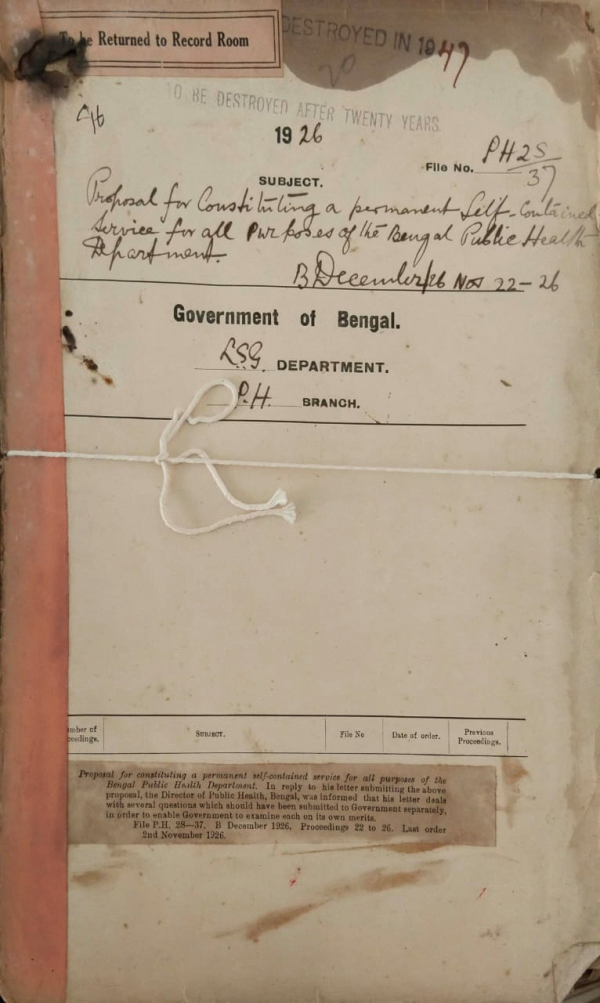 To be Returned to Record Room
DESTROYED IN 1947
20
TO BE DESTROYED AFTER TWENTY YEARS
1926
File No. PH 2S/37
SUBJECT.
Proposal for Constituting a permanent Self-Contained
Service for all purposes of the Bengal Public Health
Department.
B December/26 Nos 22-26
Government of Bengal.
LSG. DEPARTMENT.
P.H. BRANCH.
mber of
ceedings.
SUBJECT.
File No
Date of order.
Previous
Proceedings.
Proposal for constituting a permanent self-contained service for all purposes of the
Bengal Public Health Department. In reply to his letter submitting the above
proposal, the Director of Public Health, Bengal, was informed that his letter deals
with several questions which should have been submitted to Government separately,
in order to enable Government to examine each on its own merits.
File P.H. 2S—37. B December 1926. Proceedings 22 to 26. Last order
2nd November 1926.